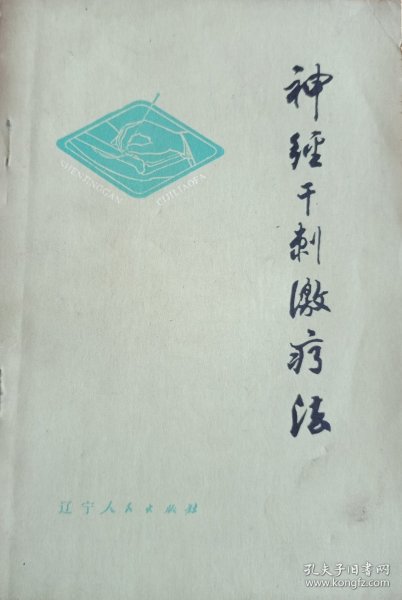 神经干刺激疗法
SHENJINGGAN
CIJILIAOFA
辽宁人民出版社
孔夫子旧书网
www.kongfz.com